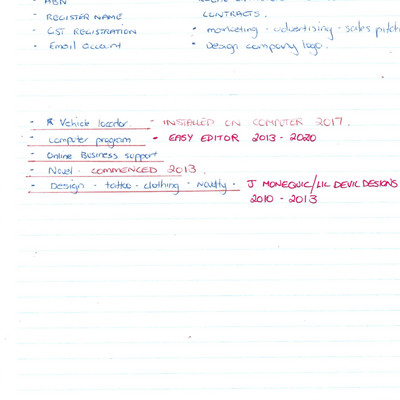 - ABN
- REGISTER NAME
- GST REGISTRATION
- Email account
CONTRACTS.
- marketing - advertising - sales pitch
- Design company logo.
- Vehicle locator. - INSTALLED ON COMPUTER 2017.
- computer program - EASY EDITOR 2013 - 2020
- Online Business support
- Novel - COMMENCED 2013.
- Design - tattoo - clothing - novelty - J MONEQUIC/LIL DEVIL DESIGNS
2010 - 2013